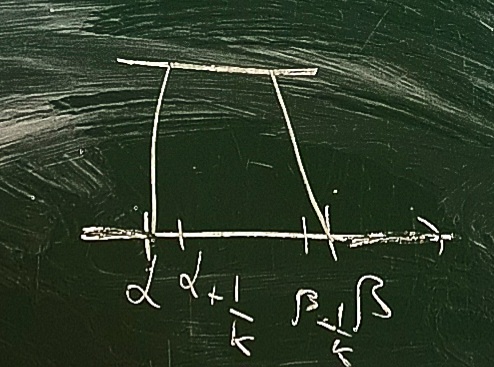 α α+1/k β-1/k β